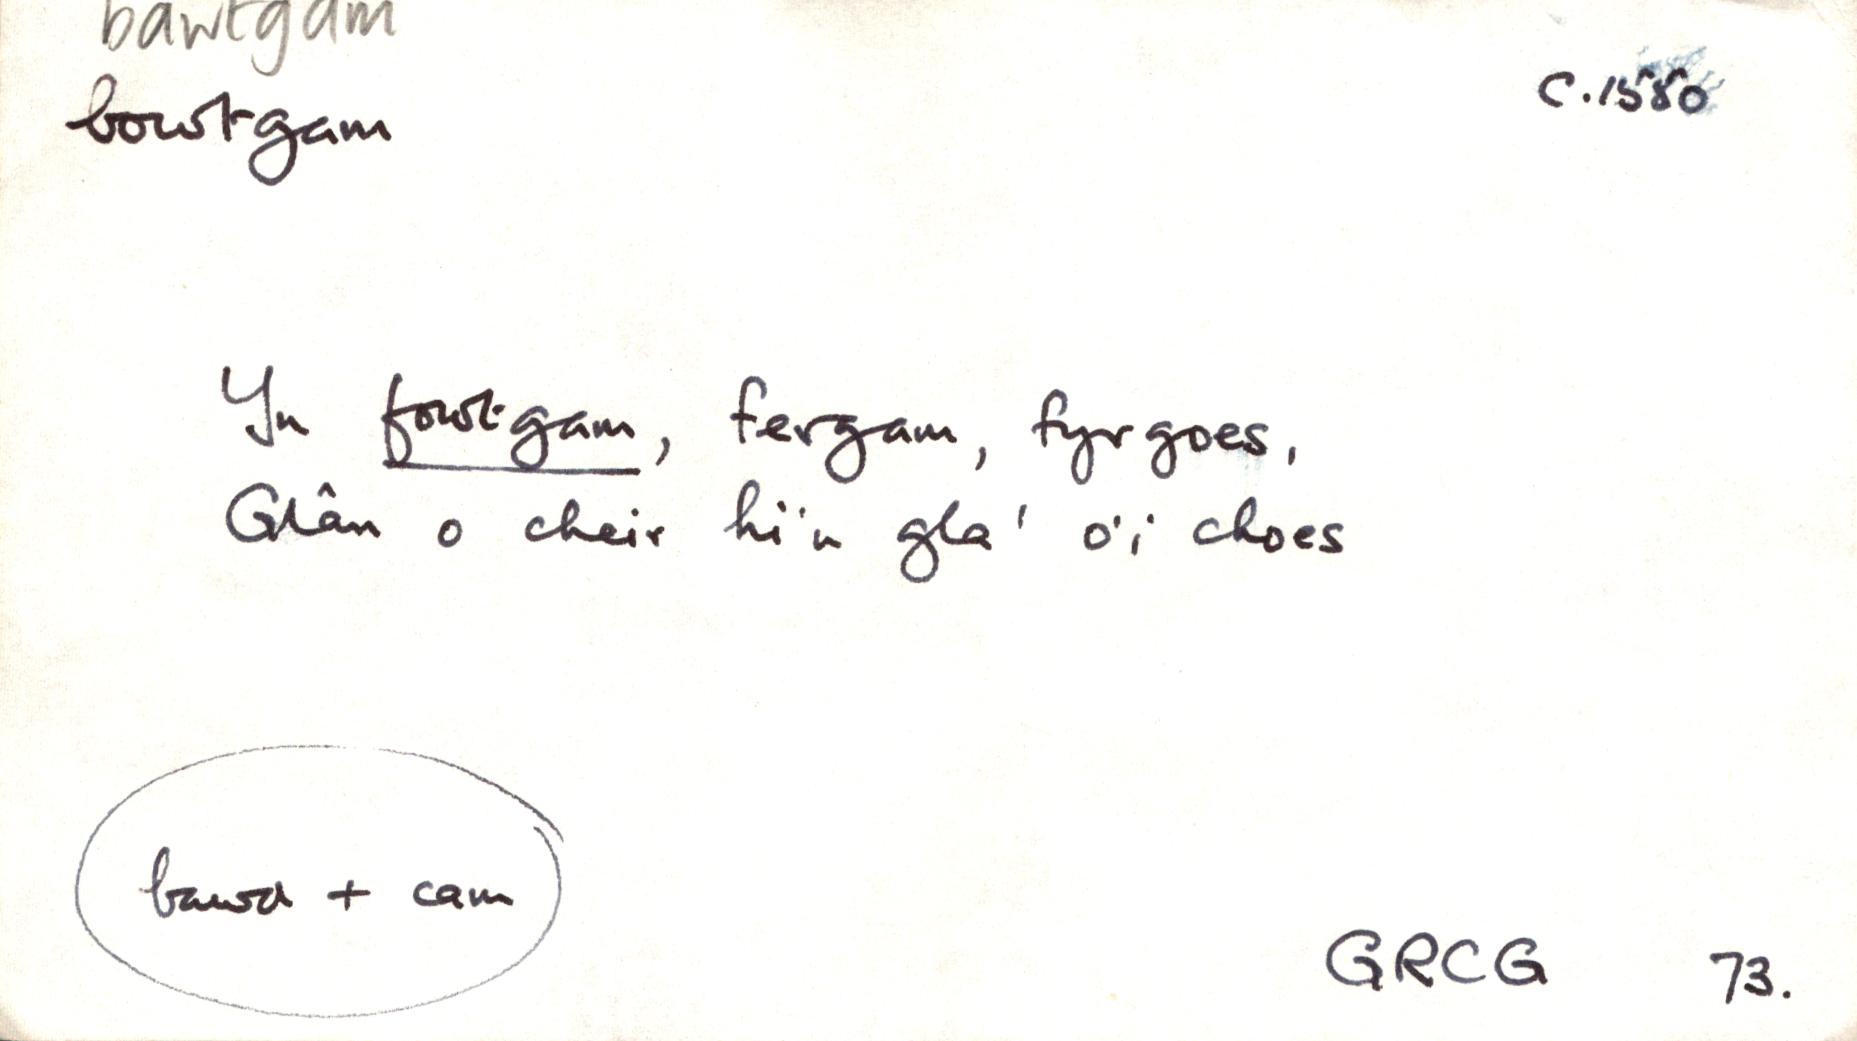 bawtgam
bowtgam
c. 1580
Yn fowtgam, fergam, fyrgoes,
Glân o cheir hi'n gla' o'i choes
bawd + cam
GRCG 73.